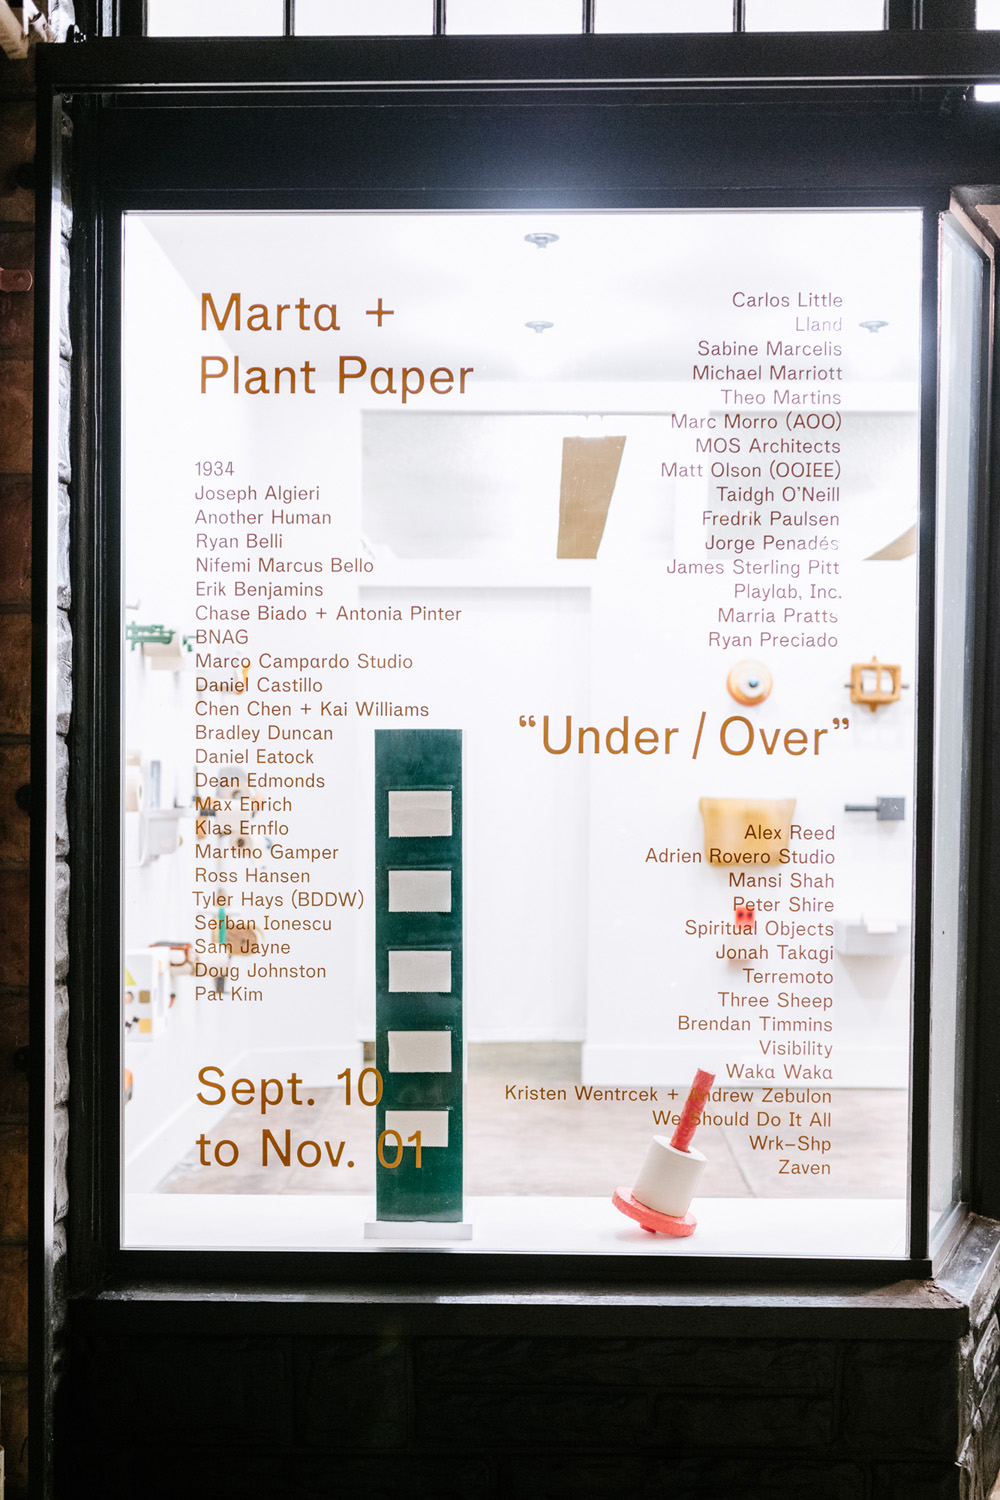 Marta +
Plant Paper
1934
Joseph Algieri
Another Human
Ryan Belli
Nifemi Marcus Bello
Erik Benjamins
Chase Biado + Antonia Pinter
BNAG
Marco Campardo Studio
Daniel Castillo
Chen Chen + Kai Williams
Bradley Duncan
Daniel Eatock
Dean Edmonds
Max Enrich
Klas Ernflo
Martino Gamper
Ross Hansen
Tyler Hays (BDDW)
Serban Ionescu
Sam Jayne
Doug Johnston
Pat Kim
Sept. 10
to Nov. 01
Carlos Little
Lland
Sabine Marcelis
Michael Marriott
Theo Martins
Marc Morro (AOO)
MOS Architects
Matt Olson (OOIEE)
Taidgh O’Neill
Fredrik Paulsen
Jorge Penadés
James Sterling Pitt
Playlab, Inc.
Marria Pratts
Ryan Preciado
“Under / Over”
Alex Reed
Adrien Rovero Studio
Mansi Shah
Peter Shire
Spiritual Objects
Jonah Takagi
Terremoto
Three Sheep
Brendan Timmins
Visibility
Waka Waka
Kristen Wentrcek + Andrew Zebulon
We Should Do It All
Wrk–Shp
Zaven